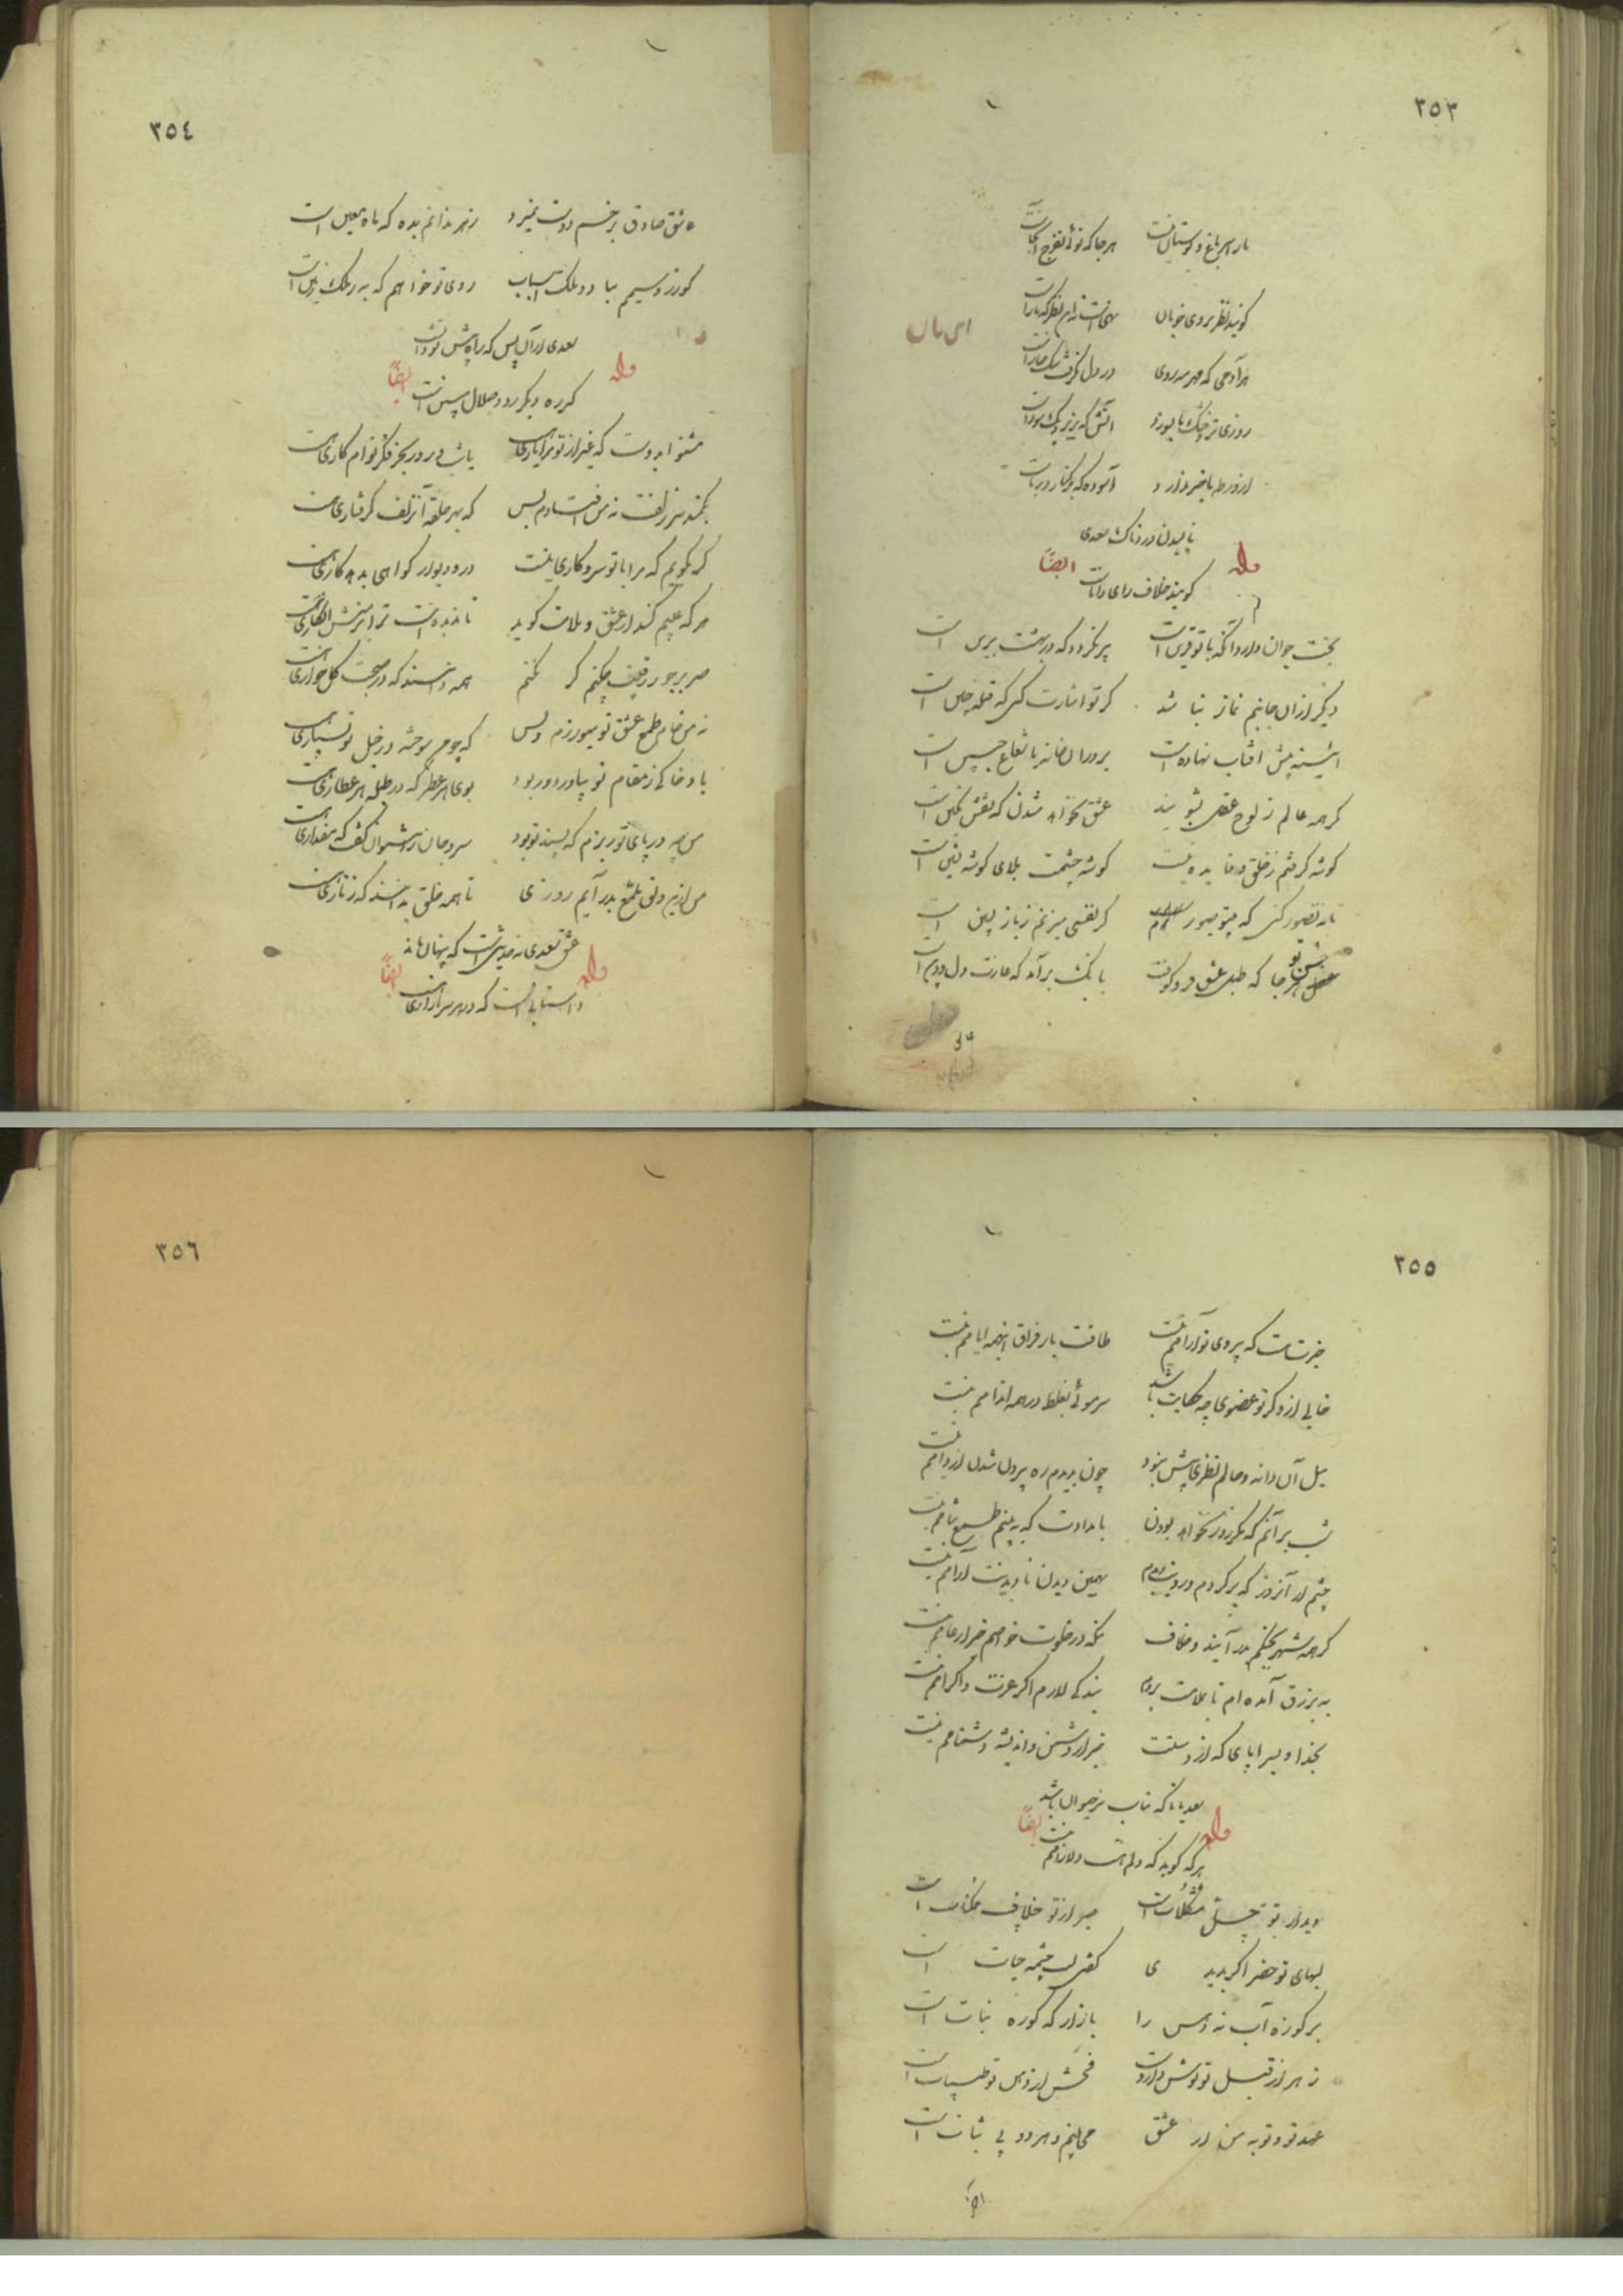 ٣٥٣
ما را سر باغ و بوستان نیست هر جا که توئی تفرج آنجاست
گویند نظر بروی خوبان نهی است نه این نظر که ما راست
هر آدمی که مهر مه روی در دل نگرفت سنگ خاراست
روزی تر و خشک ما بسوزد آتش که بزیر دیک سوداست
از ورطه ما خبر ندارد آسوده که بر کنار دریاست
نالیدن دردناک سعدی
وله ایضاً
گویند خلاف رای داناست
بخت جوان دارد آنکه با تو قرین است پیر نگردد که در بهشت برین است
دیگر از آن جانبم نماز نباشد گر تو اشارت کنی که قبله چنین است
آئینه پیش آفتاب نهاده است بر در آن خانه یا شعاع جبین است
گر همه عالم ز لوح عقل بشویند عشق نخواهد شدن که نقش نگین است
گوشه گرفتم ز خلق و فایده نیست گوشه چشمت بلای گوشه نشین است
تا نه تصور کنی که بیتو صبورم گر نفسی میزنم ز باز پسین است
حسن تو هر جا که طبل عشق فرو کوفت بانگ برآمد که غارت دل و دین است
٣٥٤
عاشق صادق بزخم دوست نمیرد زهر مذابم بده که ماء معین است
گو زر و سیمم مباد و ملکت و اسباب روی تو خواهم که به ز ملک زمین است
سعدی از آن پس که راه پیش تو دانست
وله ایضاً
گر ره دیگر رود ضلال مبین است
مشنو ایدوست که غیر از تو مرا یاری هست یا شب و روز بجز فکر توام کاری هست
بکمند سر زلفت نه من افتادم و بس که بهر حلقه آن زلف گرفتاری هست
گر بگویم که مرا با تو سر و کاری نیست در و دیوار گواهی بدهد کاری هست
هر که عیبم کند از عشق و ملامت گوید تا ندیده است ترا بر منش انکاری هست
صبر بر جور رقیبت چکنم گر نکنم همه دانند که در صحبت گل خاری هست
نه من خام طمع عشق تو میورزم و بس که چو من سوخته در خیل تو بسیاری هست
باد خاکی ز مقام تو بیاورد و ربود بوی هر عطر که در طبله هر عطاری هست
من چه در پای تو ریزم که پسند تو بود سر و جان را نتوان گفت که مقداری هست
من ازین دلق ملمع بدر آیم روزی تا همه خلق بدانند که زناری هست
عشق سعدی نه حدیثی است که پنهان ماند
وله ایضاً
داستانی است که در هر سر بازاری هست
٣٥٥
خبرت هست که بی روی تو آرامم نیست طاقت بار فراق اینهمه ایامم نیست
خالی از ذکر تو عضوی چه حکایت باشد سر موئی بغلط در همه اندامم نیست
میل آن دانه خالم نظری بیش نبود چون بدیدم ره بیرون شدن از دامم نیست
شب بر آنم که مگر روز نخواهد بودن بامدادت که نه بینم طمع شامم نیست
چشم از آنروز که بر کردم و رویت دیدم بهمین دیدن نادیدنت آرامم نیست
گر همه شهر بجنگم بدر آیند و خلاف منکه در خلوت خاصم خبر از عامم نیست
نه بزرق آمده ام تا بملامت بروم بندگی لازم اگر عزت و اکرامم نیست
بخدا و بسراپای که از دوستیت خبر از دشمن و اندیشه دشنامم نیست
سعدیا نامتناسب حیوانی باشد
وله ایضاً
هر که گوید که دلم هست و دلارامم نیست
دیدار تو حل مشکلات است صبر از تو خلاف ممکنات است
لبهای تو خضر اگر بدیدی گفتی لب چشمه حیات است
بر کوزه آب نه دهن را بردار که کوزه نبات است
زهر از قبل تو نوش داروست فحش از دهن تو طیبات است
عهد تو و توبه من از عشق می بینم و هر دو بی ثبات است
٣٥٦